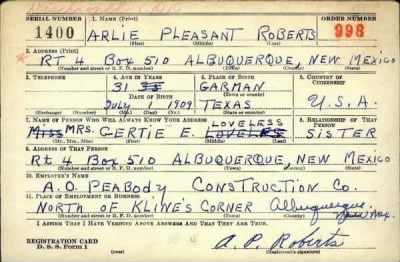 SERIAL NUMBER 1. NAME (Print) ORDER NUMBER
1400 ARLIE PLEASANT ROBERTS 998
(First) (Middle) (Last)
2. ADDRESS (Print)
RT 4 BOX 510 ALBUQUERQUE, NEW MEXICO
(Number and street or R. F. D. number) (Town) (County) (State)
3. TELEPHONE 4. AGE IN YEARS 5. PLACE OF BIRTH 6. COUNTRY OF CITIZENSHIP
31 GARMAN
DATE OF BIRTH (Town or county)
July 1 1909 TEXAS U.S.A.
(Exchange) (Number) (Mo.) (Day) (Yr.) (State or country)
7. NAME OF PERSON WHO WILL ALWAYS KNOW YOUR ADDRESS LOVELESS 8. RELATIONSHIP OF THAT PERSON
Miss MRS. GERTIE E. LOVELES SISTER
(Mr., Mrs., Miss) (First) (Middle) (Last)
9. ADDRESS OF THAT PERSON
Rt 4 Box 510 ALBUQUERQUE, NEW MEXICO
(Number and street or R. F. D. number) (Town) (County) (State)
10. EMPLOYER'S NAME
A.O. PEABODY CONSTRUCTION CO.
11. PLACE OF EMPLOYMENT OR BUSINESS
NORTH OF KLINE'S CORNER Albuquerque, New Mex.
(Number and street or R. F. D. number) (Town) (County) (State)
I AFFIRM THAT I HAVE VERIFIED ABOVE ANSWERS AND THAT THEY ARE TRUE.
REGISTRATION CARD
D. S. S. Form 1
A. P. Roberts
(Registrant's signature)